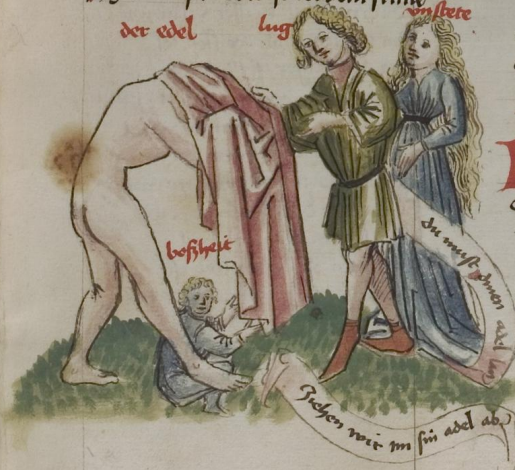 der edel
lug
vnstete
boßheit
du muſt
adel
Ziehen wir im ſin adel ab